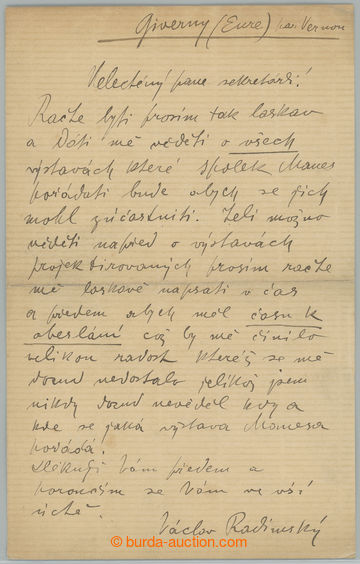 Giverny (Eure) par Vernon
Velectěný pane sekretáři!
Račte býti prosím tak laskav
a dáti mě věděti o všech
výstavách které spolek Manes
pořádati bude abych se jich
mohl zúčastniti. Želi možno
věděti napřed o výstavách
projektirovaných prosím račte
mě laskavě napsati v čas
a předem abych měl času k
obeslání což by mě činilo
velikou radost kteréž se mě
dosud nedostalo jelikož jsem
nikdy dosud nevěděl kdy a
kde se jaká výstava Manesa
pořádá.
Děkuji Vám předem a
poroučím se Vám ve vší
úctě.
Václav Radimský
burda-auction.com